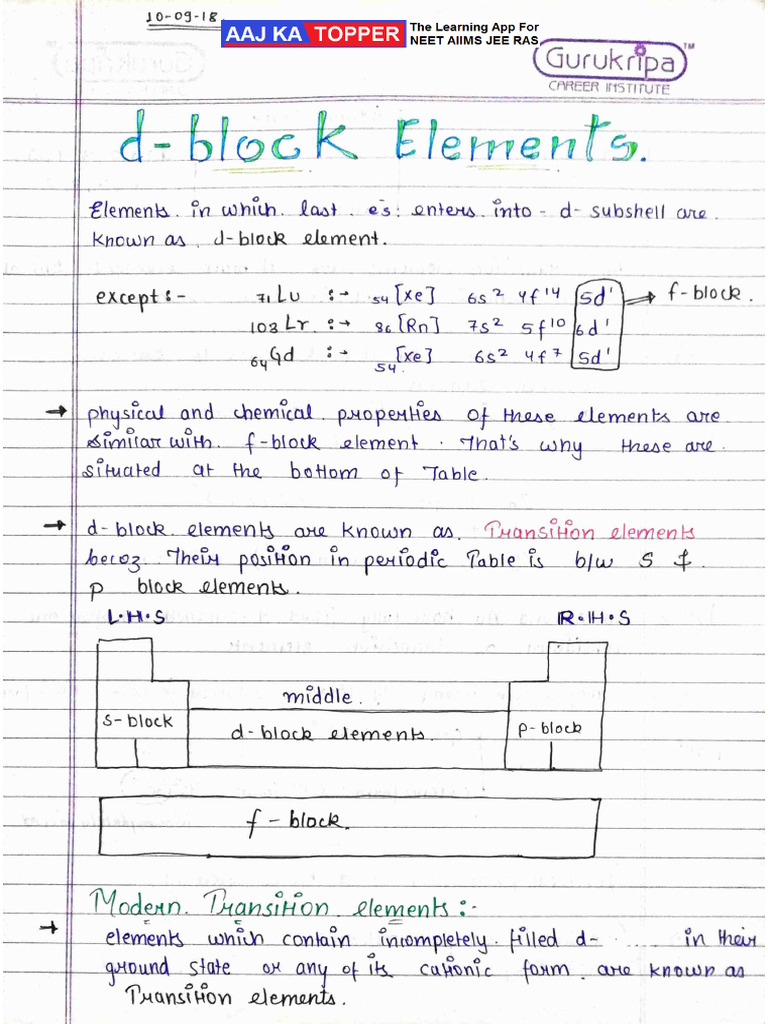 10-09-18
AAJ KA TOPPER
The Learning App For
NEET AIIMS JEE RAS
Gurukripa TM
CAREER INSTITUTE
d-block Elements.
Elements in which last e⁻s enters into - d- subshell are
known as d-block element.
except:- ₇₁Lu :→ ₅₄[Xe] 6s² 4f¹⁴ 5d¹ → f-block.
₁₀₃Lr :→ ₈₆[Rn] 7s² 5f¹⁰ 6d¹
₆₄Gd :→ ₅₄[Xe] 6s² 4f⁷ 5d¹
→ physical and chemical properties of these elements are
similar with f-block element. That's why these are
situated at the bottom of Table.
→ d-block elements are known as Transition elements
becoz Their position in periodic Table is b/w S &
p block elements.
L.H.S R.H.S
middle.
s-block d-block elements. p-block
f-block.
Modern Transition elements:-
→ elements which contain incompletely filled d- ...... in their
ground state or any of its cationic form are known as
Transition elements.